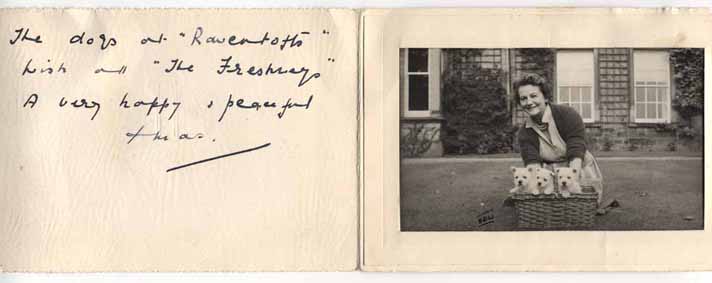 The dogs at "Raventofts"
wish all "The Freshneys"
A very happy & peaceful
Xmas.